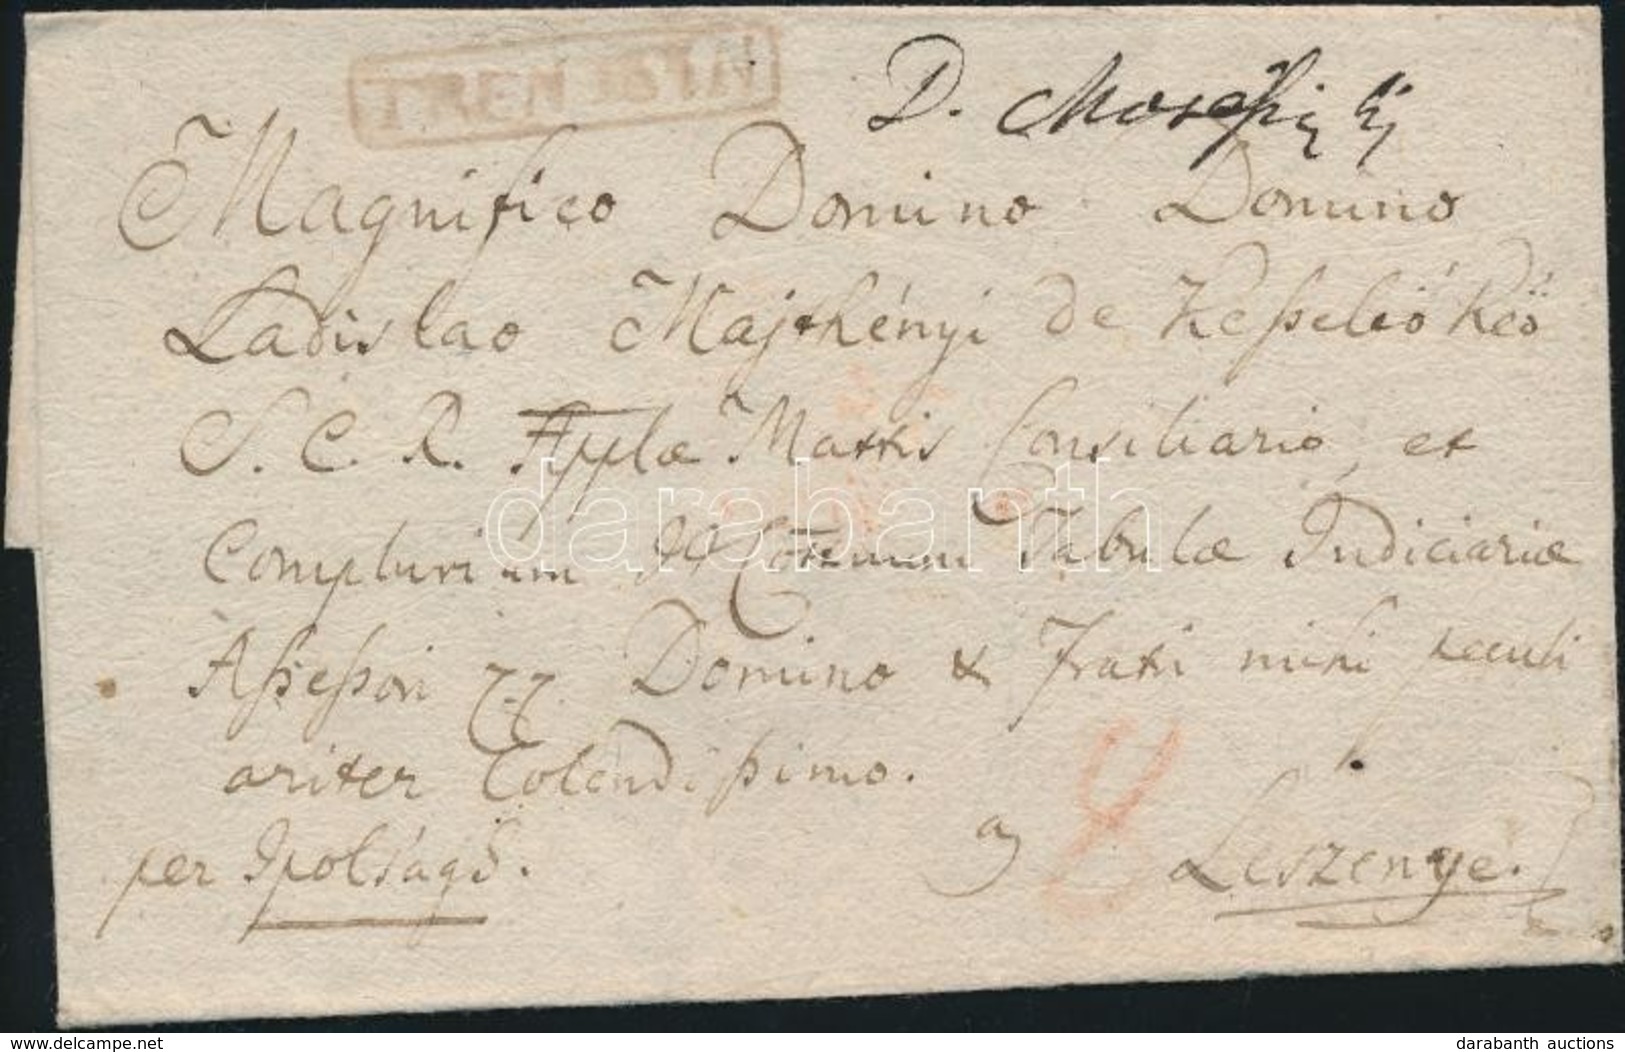 TRENTSIN
D.
Magnifico Domino Domino
Ladislao Majthényi de Keßeleö Keö
S. C. R. Applae Mattis Consiliario, et
Complurium II Cottuum Tabulae Judiciariae
Aßeßori Domino & Fratri mihi peculi
ariter Colendißimo.
per Ipolságh.
a 8 Leszenye.
darabanth
www.delcampe.net
darabanth auctions